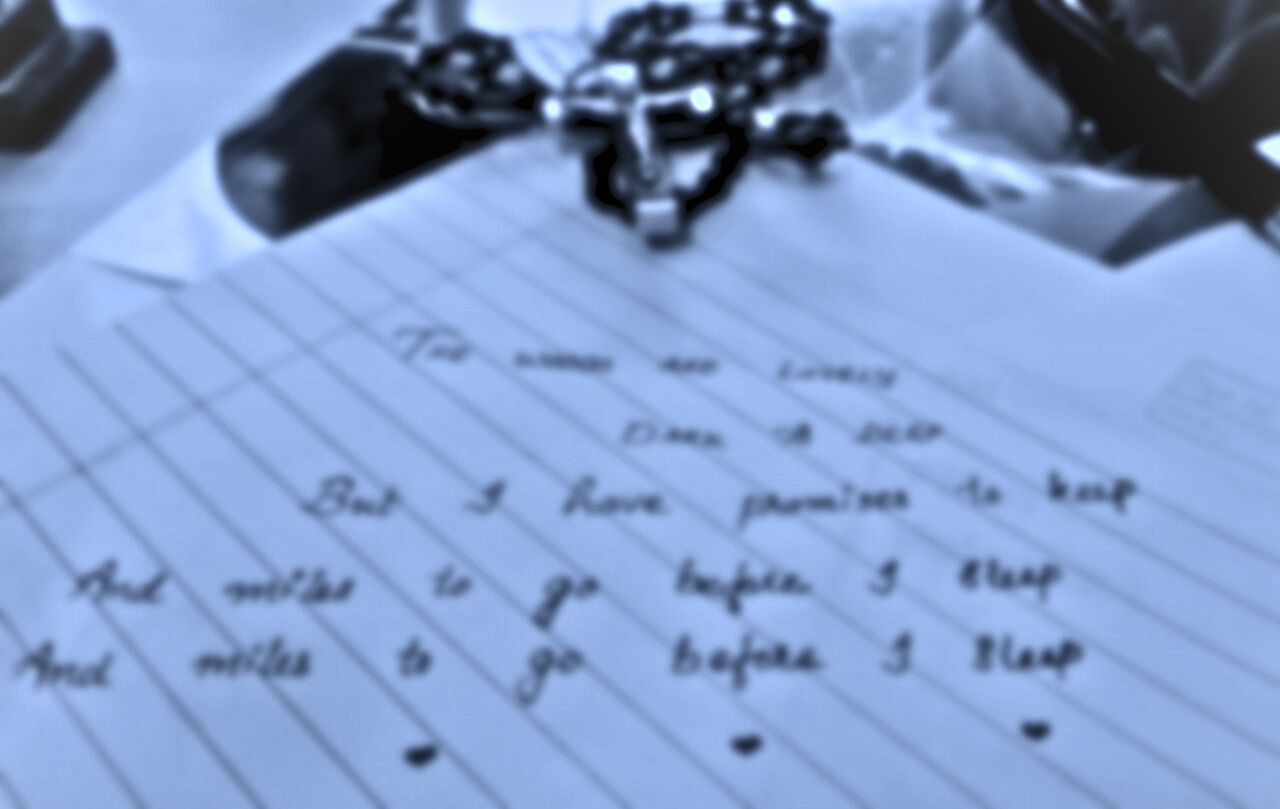 The woods are lovely
Dark deep
But I have promises to keep
And miles to go before I sleep
And miles to go before I sleep